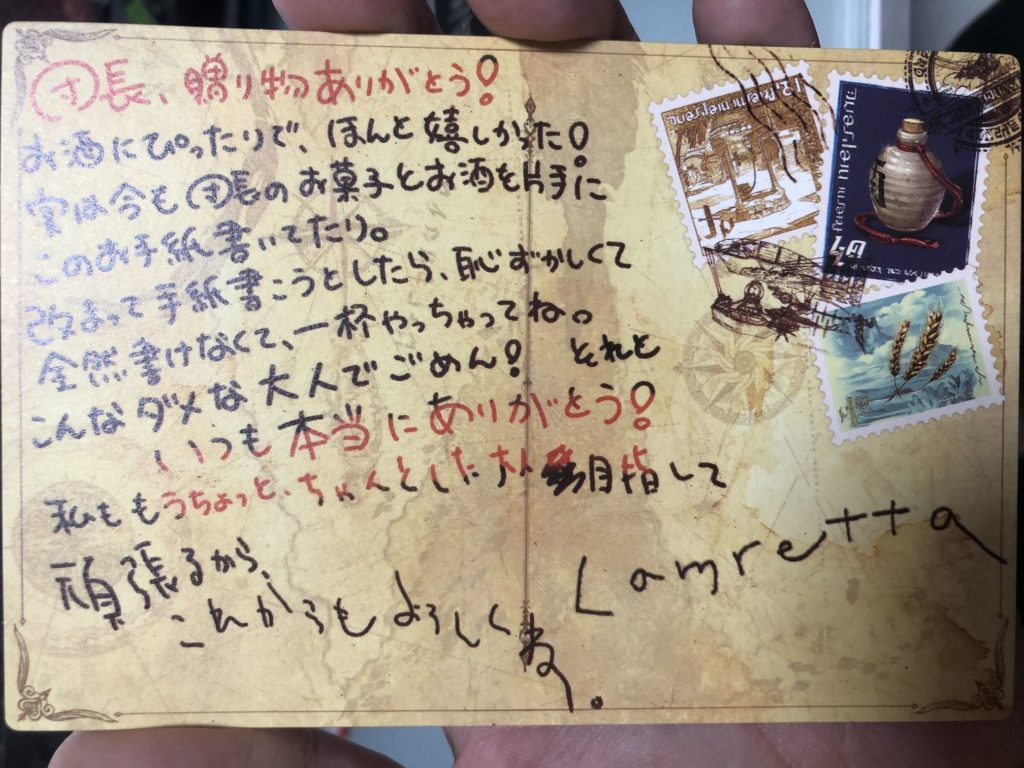 団長、贈り物ありがとう!
お酒にぴったりで、ほんと嬉しかった!
実は今も団長のお菓子とお酒を片手に
このお手紙書いてたり。
改まって手紙書こうとしたら、恥ずかしくて
全然書けなくて、一杯やっちゃってね。
こんなダメな大人でごめん! それと
いつも本当にありがとう!
私ももうちょっと、ちゃんとした大人目指して
頑張るから、
これからもよろしくね。
Lamretta